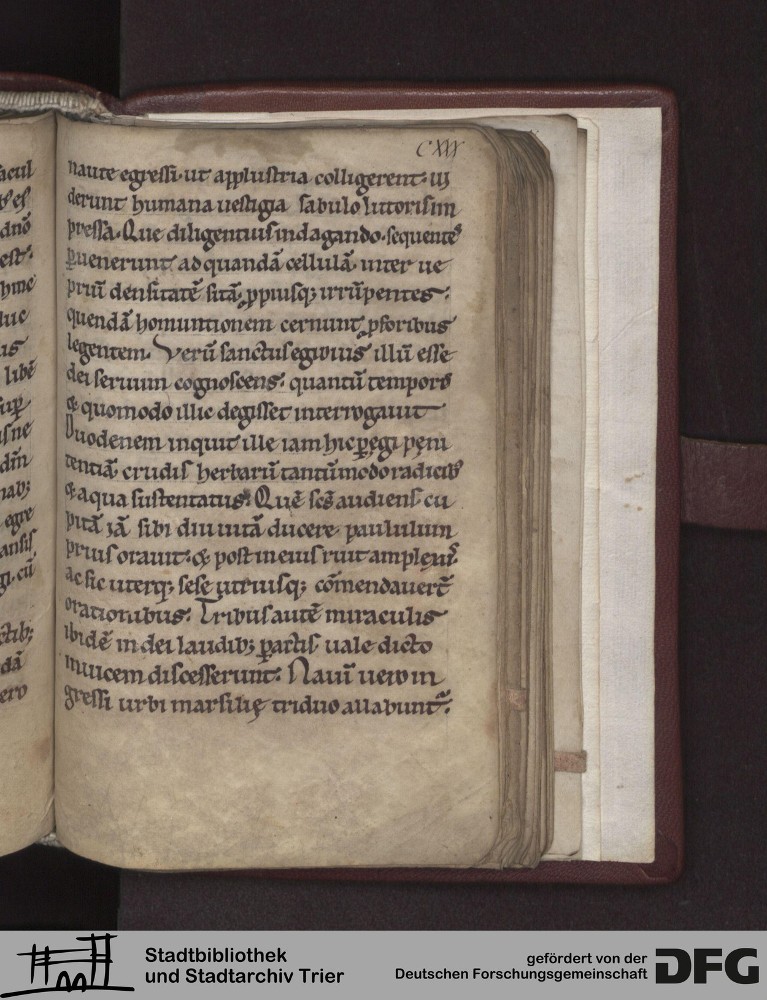 acul
b; es
dnō
est.
hinc
luc
us
libē
sup
isne
dm̄
nab;
egre
ansis
gi. cū
ctib;
dā
ero
CXXX
naute egressi. ut applustria colligerent. ui
derunt humana uestigia sabulo littoris im
pressa. Que diligentius indagando. sequentes
ꝑuenerunt ad quandā cellulā. inter ue
priū densitatē sitā. ꝓpiusq; irrūpentes.
quendā homuntionem cernunt. ꝑforibus
legentem. Verū sanctus egidius illū esse
dei seruum cognoscens. quantū temporis
& quomodo illic degisset interrogauit
Duodenem inquit ille iam hic ꝑegi peni
tentiā. crudis herbarū tantūmodo radicib;
& aqua sustentatus. Quē scs̄ audiens. cu
pitā iā sibi diu uitā ducere paululum
prius orauit. & post in eius ruit amplexus.
ac sic uterq; sese utriusq; cōmendauert̄
orationibus. Tribus autē miraculis
ibidē in dei laudib; ꝑactis uale dicto
inuicem discesserunt. Nauī uero in
gressi urbi marsilię triduo allabunt᷑.
Stadtbibliothek
und Stadtarchiv Trier
gefördert von der
Deutschen Forschungsgemeinschaft
DFG